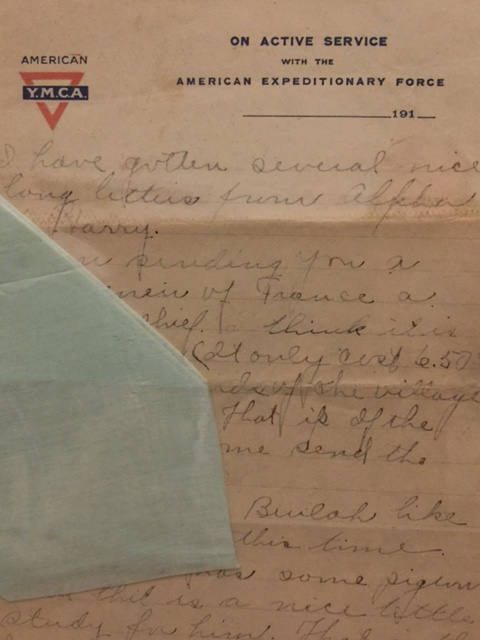 AMERICAN
Y.M.C.A.
ON ACTIVE SERVICE
WITH THE
AMERICAN EXPEDITIONARY FORCE
191
I have gotten several nice
long letters from Alpha
Harry.
sending you a
of France a
think it is
It only cost 6.50
of the village
That is of the
me send the
Beulah like
this time.
has some pigeon
this is a nice little
study for him. That